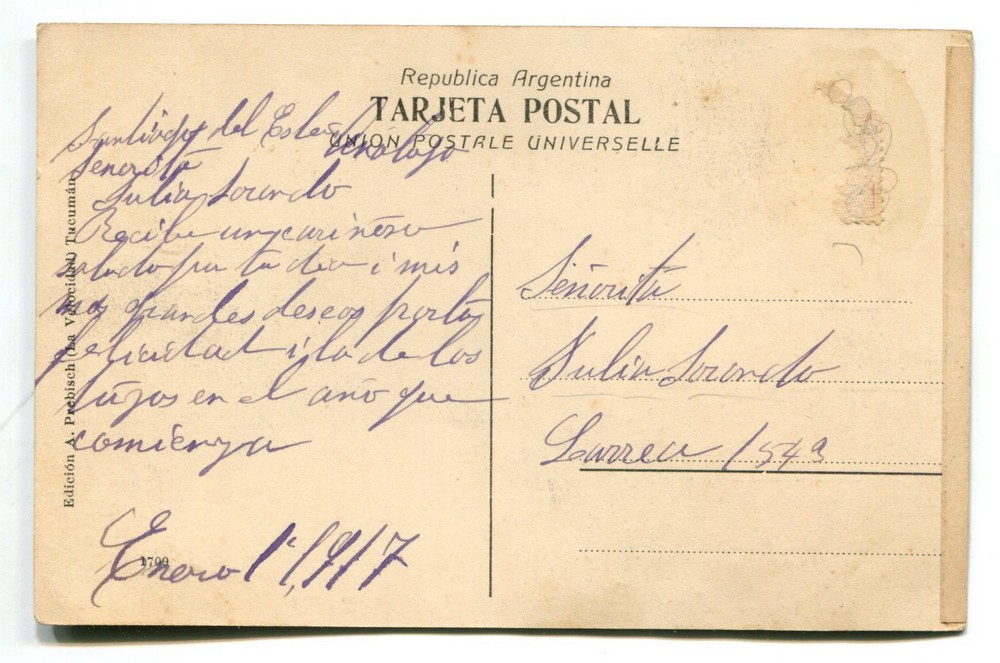 Republica Argentina
TARJETA POSTAL
UNION POSTALE UNIVERSELLE
Santiago del Estero
Señorita
Julia Sorondo
Recibe un cariñoso
saludo pa tu dia i mis
mas grandes deseos por tu
felicidad i la de los
tuyos en el año que
comienza
Enero 1º/917
1709
Edición A. Prebisch (La Velocidad) Tucumán
Señorita
Julia Sorondo
Larrea 1543